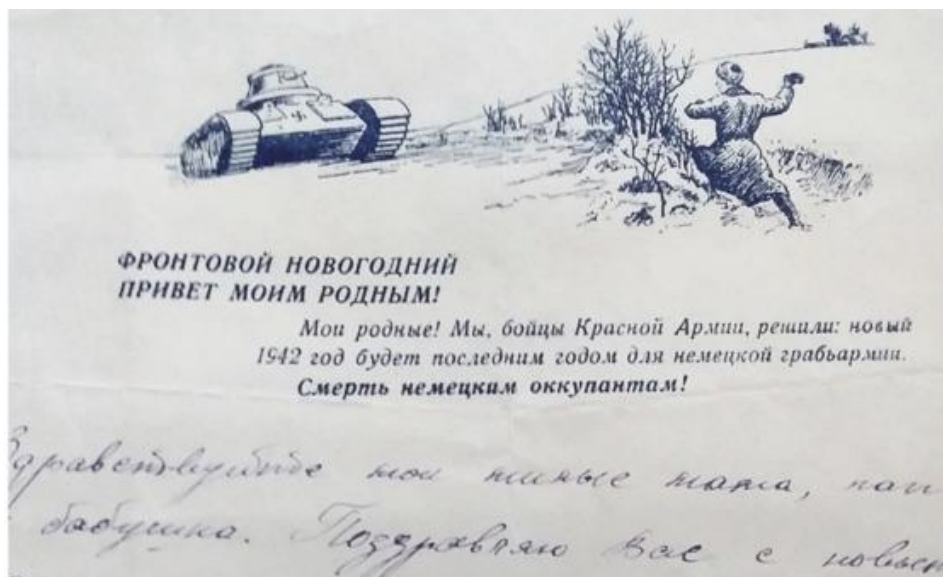 ФРОНТОВОЙ НОВОГОДНИЙ
ПРИВЕТ МОИМ РОДНЫМ!
Мои родные! Мы, бойцы Красной Армии, решили: новый
1942 год будет последним годом для немецкой грабьармии.
Смерть немецким оккупантам!
Здравствуйте мои милые мама, пап
бабушка. Поздравляю Вас с новым